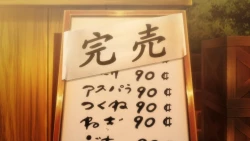 完売
90 ¢
アスパラ 90 ¢
つくね 90 ¢
ねぎ 90 ¢
90 ¢